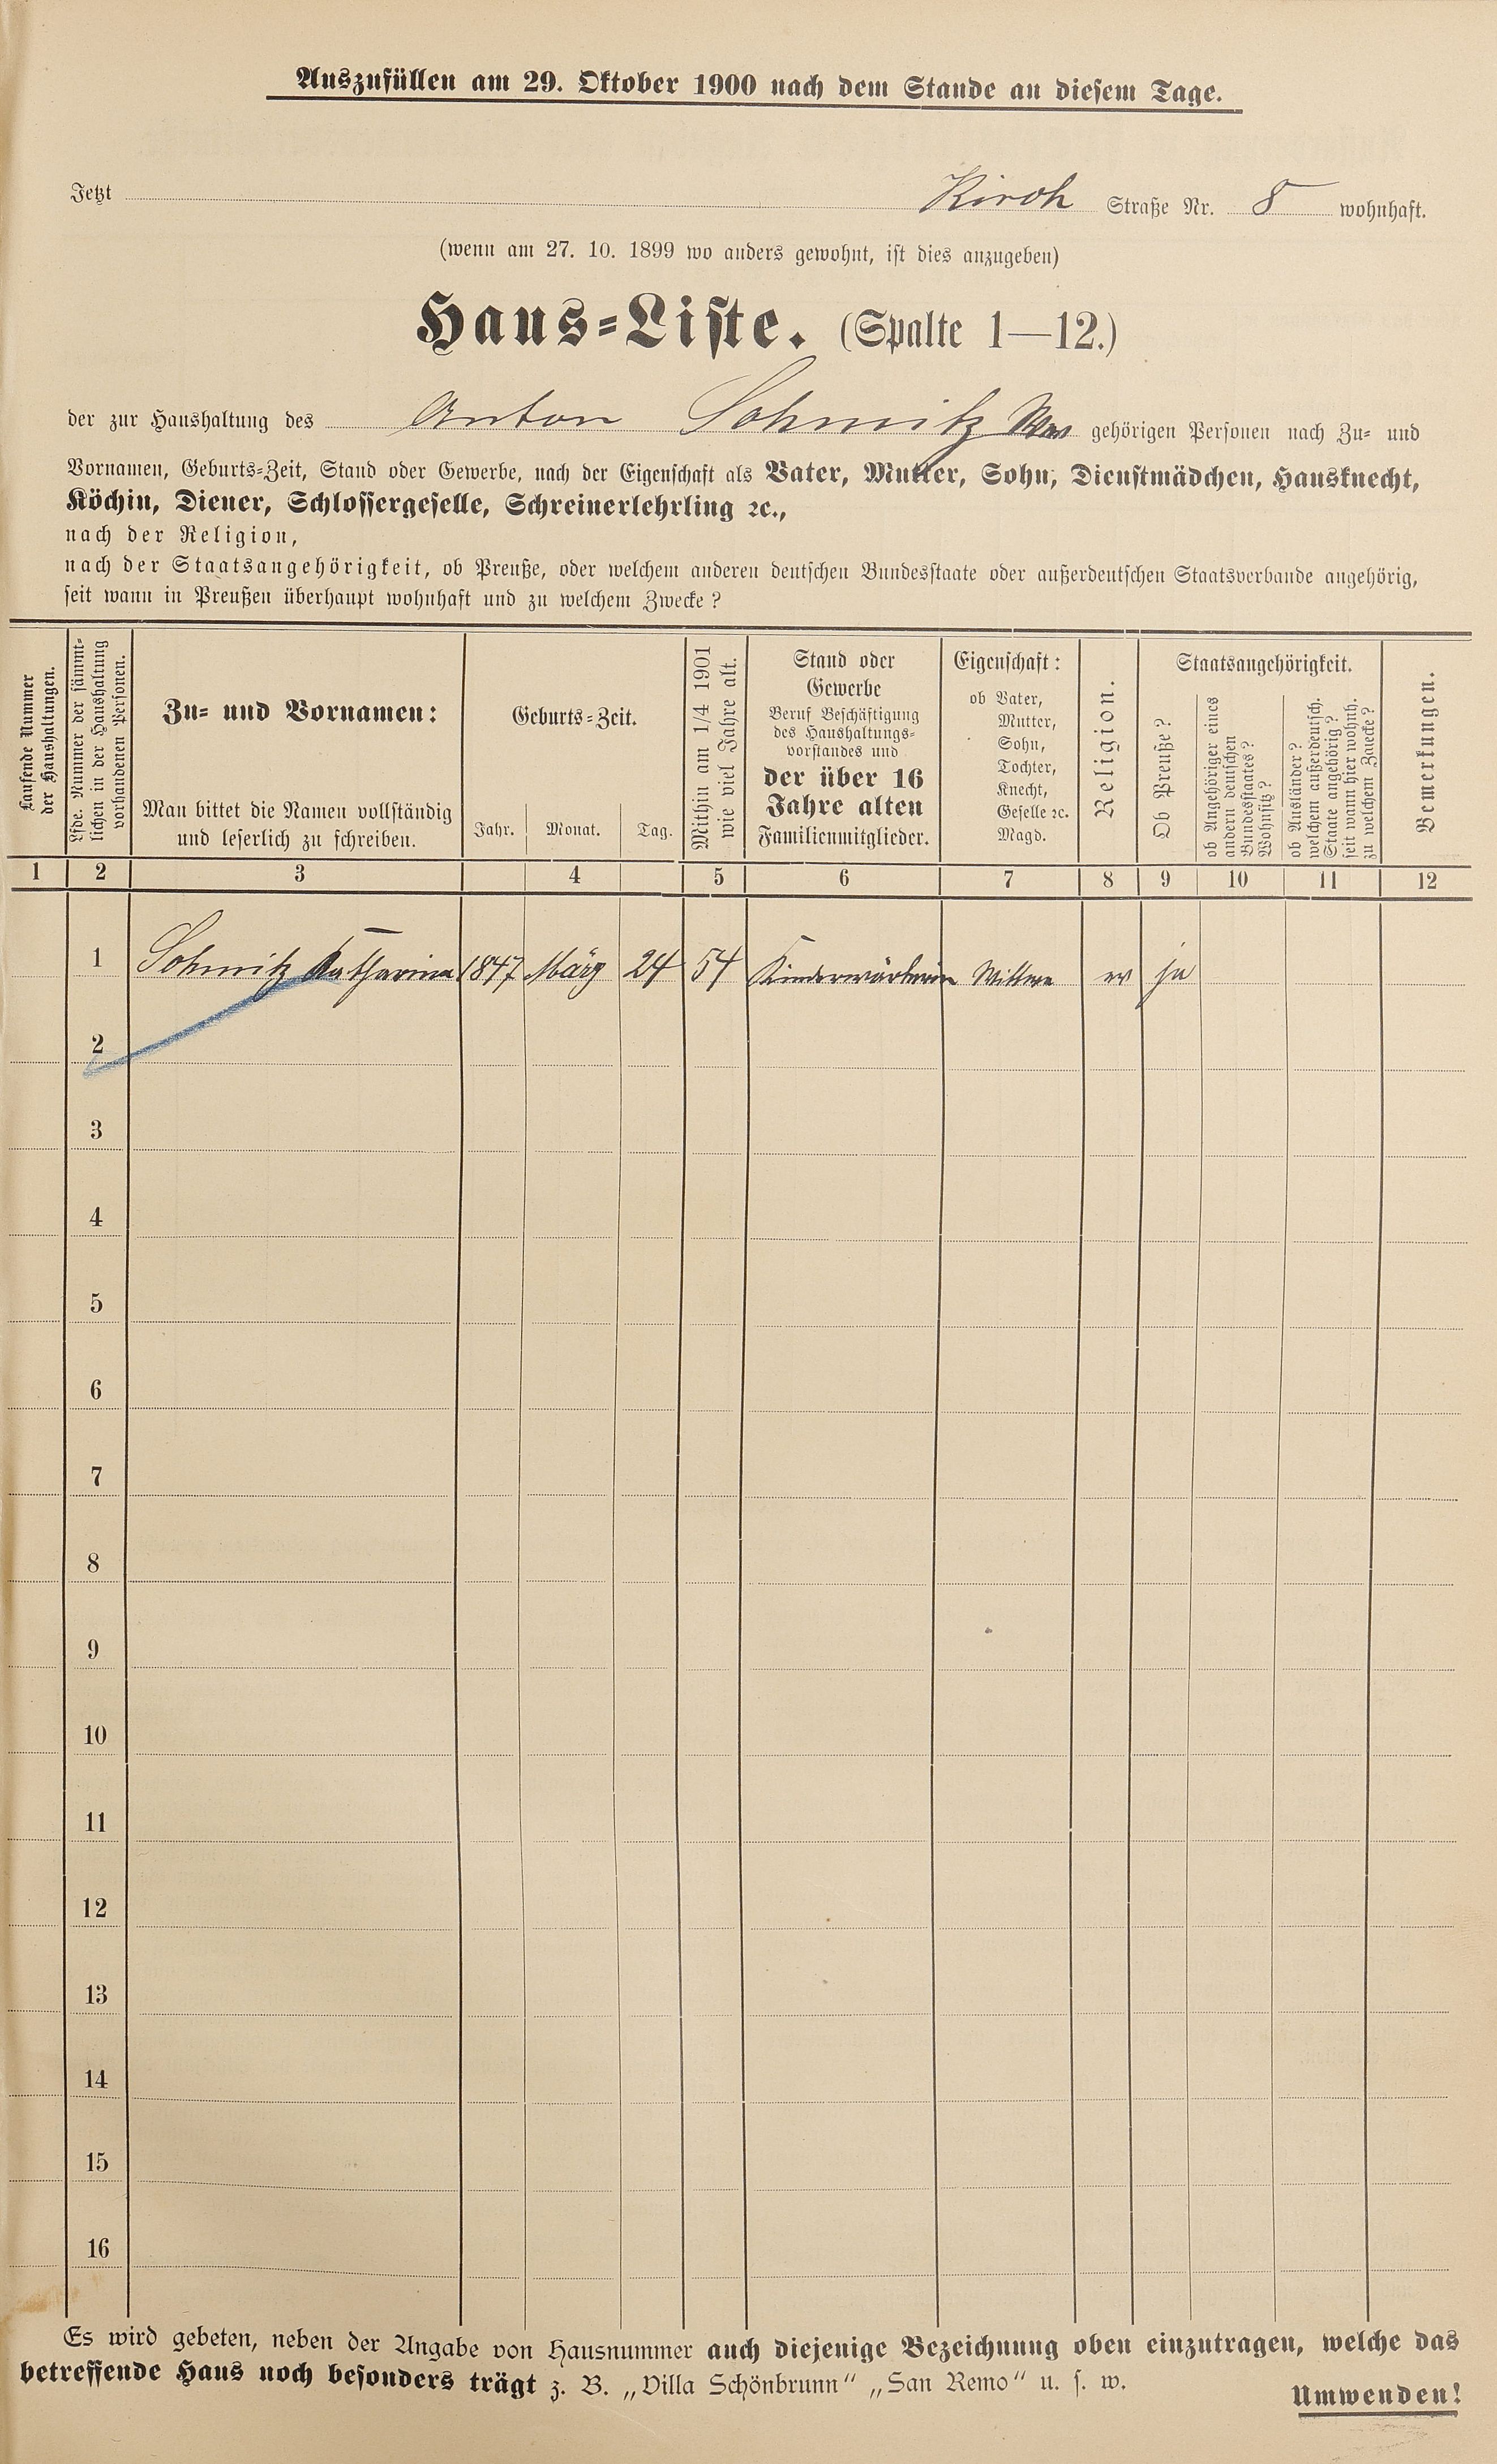 Auszufüllen am 29. Oktober 1900 nach dem Stande an diesem Tage.
Jetzt Kirch Straße Nr. 8 wohnhaft.
(wenn am 27. 10. 1899 wo anders gewohnt, ist dies anzugeben)
Haus-Liste. (Spalte 1—12.)
der zur Haushaltung des Anton Schmitz Wwe gehörigen Personen nach Zu- und
Vornamen, Geburts-Zeit, Stand oder Gewerbe, nach der Eigenschaft als Vater, Mutter, Sohn, Dienstmädchen, Hausknecht,
Köchin, Diener, Schlossergeselle, Schreinerlehrling ꝛc.,
nach der Religion,
nach der Staatsangehörigkeit, ob Preuße, oder welchem anderen deutschen Bundesstaate oder außerdeutschen Staatsverbande angehörig,
seit wann in Preußen überhaupt wohnhaft und zu welchem Zwecke?
Laufende Nummer
der Haushaltungen.
Lfde. Nummer der sämmt-
lichen in der Haushaltung
vorhandenen Personen.
Zu- und Vornamen:
Man bittet die Namen vollständig
und leserlich zu schreiben.
Geburts-Zeit.
Jahr. Monat. Tag.
Mithin am 1/4 1901
wie viel Jahre alt.
Stand oder
Gewerbe
Beruf Beschäftigung
des Haushaltungs-
vorstandes und
der über 16
Jahre alten
Familienmitglieder.
Eigenschaft:
ob Vater,
Mutter,
Sohn,
Tochter,
Knecht,
Geselle ꝛc.
Magd.
Religion.
Staatsangehörigkeit.
Ob Preuße?
ob Angehöriger eines
andern deutschen
Bundesstaates?
Wohnsitz?
ob Ausländer?
welchem außerdeutsch.
Staate angehörig?
seit wann hier wohnh.
zu welchem Zwecke?
Bemerkungen.
1 2 3 4 5 6 7 8 9 10 11 12
1 Schmitz Katharina 1847 März 24 54 Kinderwärterin Wittwe ev ja
2
3
4
5
6
7
8
9
10
11
12
13
14
15
16
Es wird gebeten, neben der Angabe von Hausnummer auch diejenige Bezeichnung oben einzutragen, welche das
betreffende Haus noch besonders trägt z. B. „Villa Schönbrunn“ „San Remo“ u. s. w.
Umwenden!